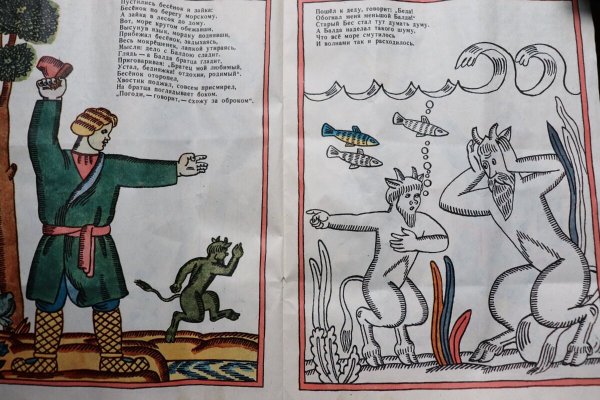 Пустились бесёнок и зайка:
Бесёнок по берегу морскому,
А зайка в лесок до дому.
Вот, море кругом обежавши,
Высунув язык, мордку поднявши,
Прибежал бесёнок, задыхаясь,
Весь мокрёшенек, лапкой утираясь,
Мысля: дело с Балдою сладит.
Глядь — а Балда братца гладит,
Приговаривая: „Братец мой любимый,
Устал, бедняжка! отдохни, родимый".
Бесёнок оторопел,
Хвостик поджал, совсем присмирел,
На братца поглядывает боком.
„Погоди,— говорит,— схожу за оброком".
Пошёл к деду, говорит: „Беда!
Обогнал меня меньшой Балда!"
Старый Бес стал тут думать думу.
А Балда наделал такого шуму,
Что всё море смутилось
И волнами так и расходилось.